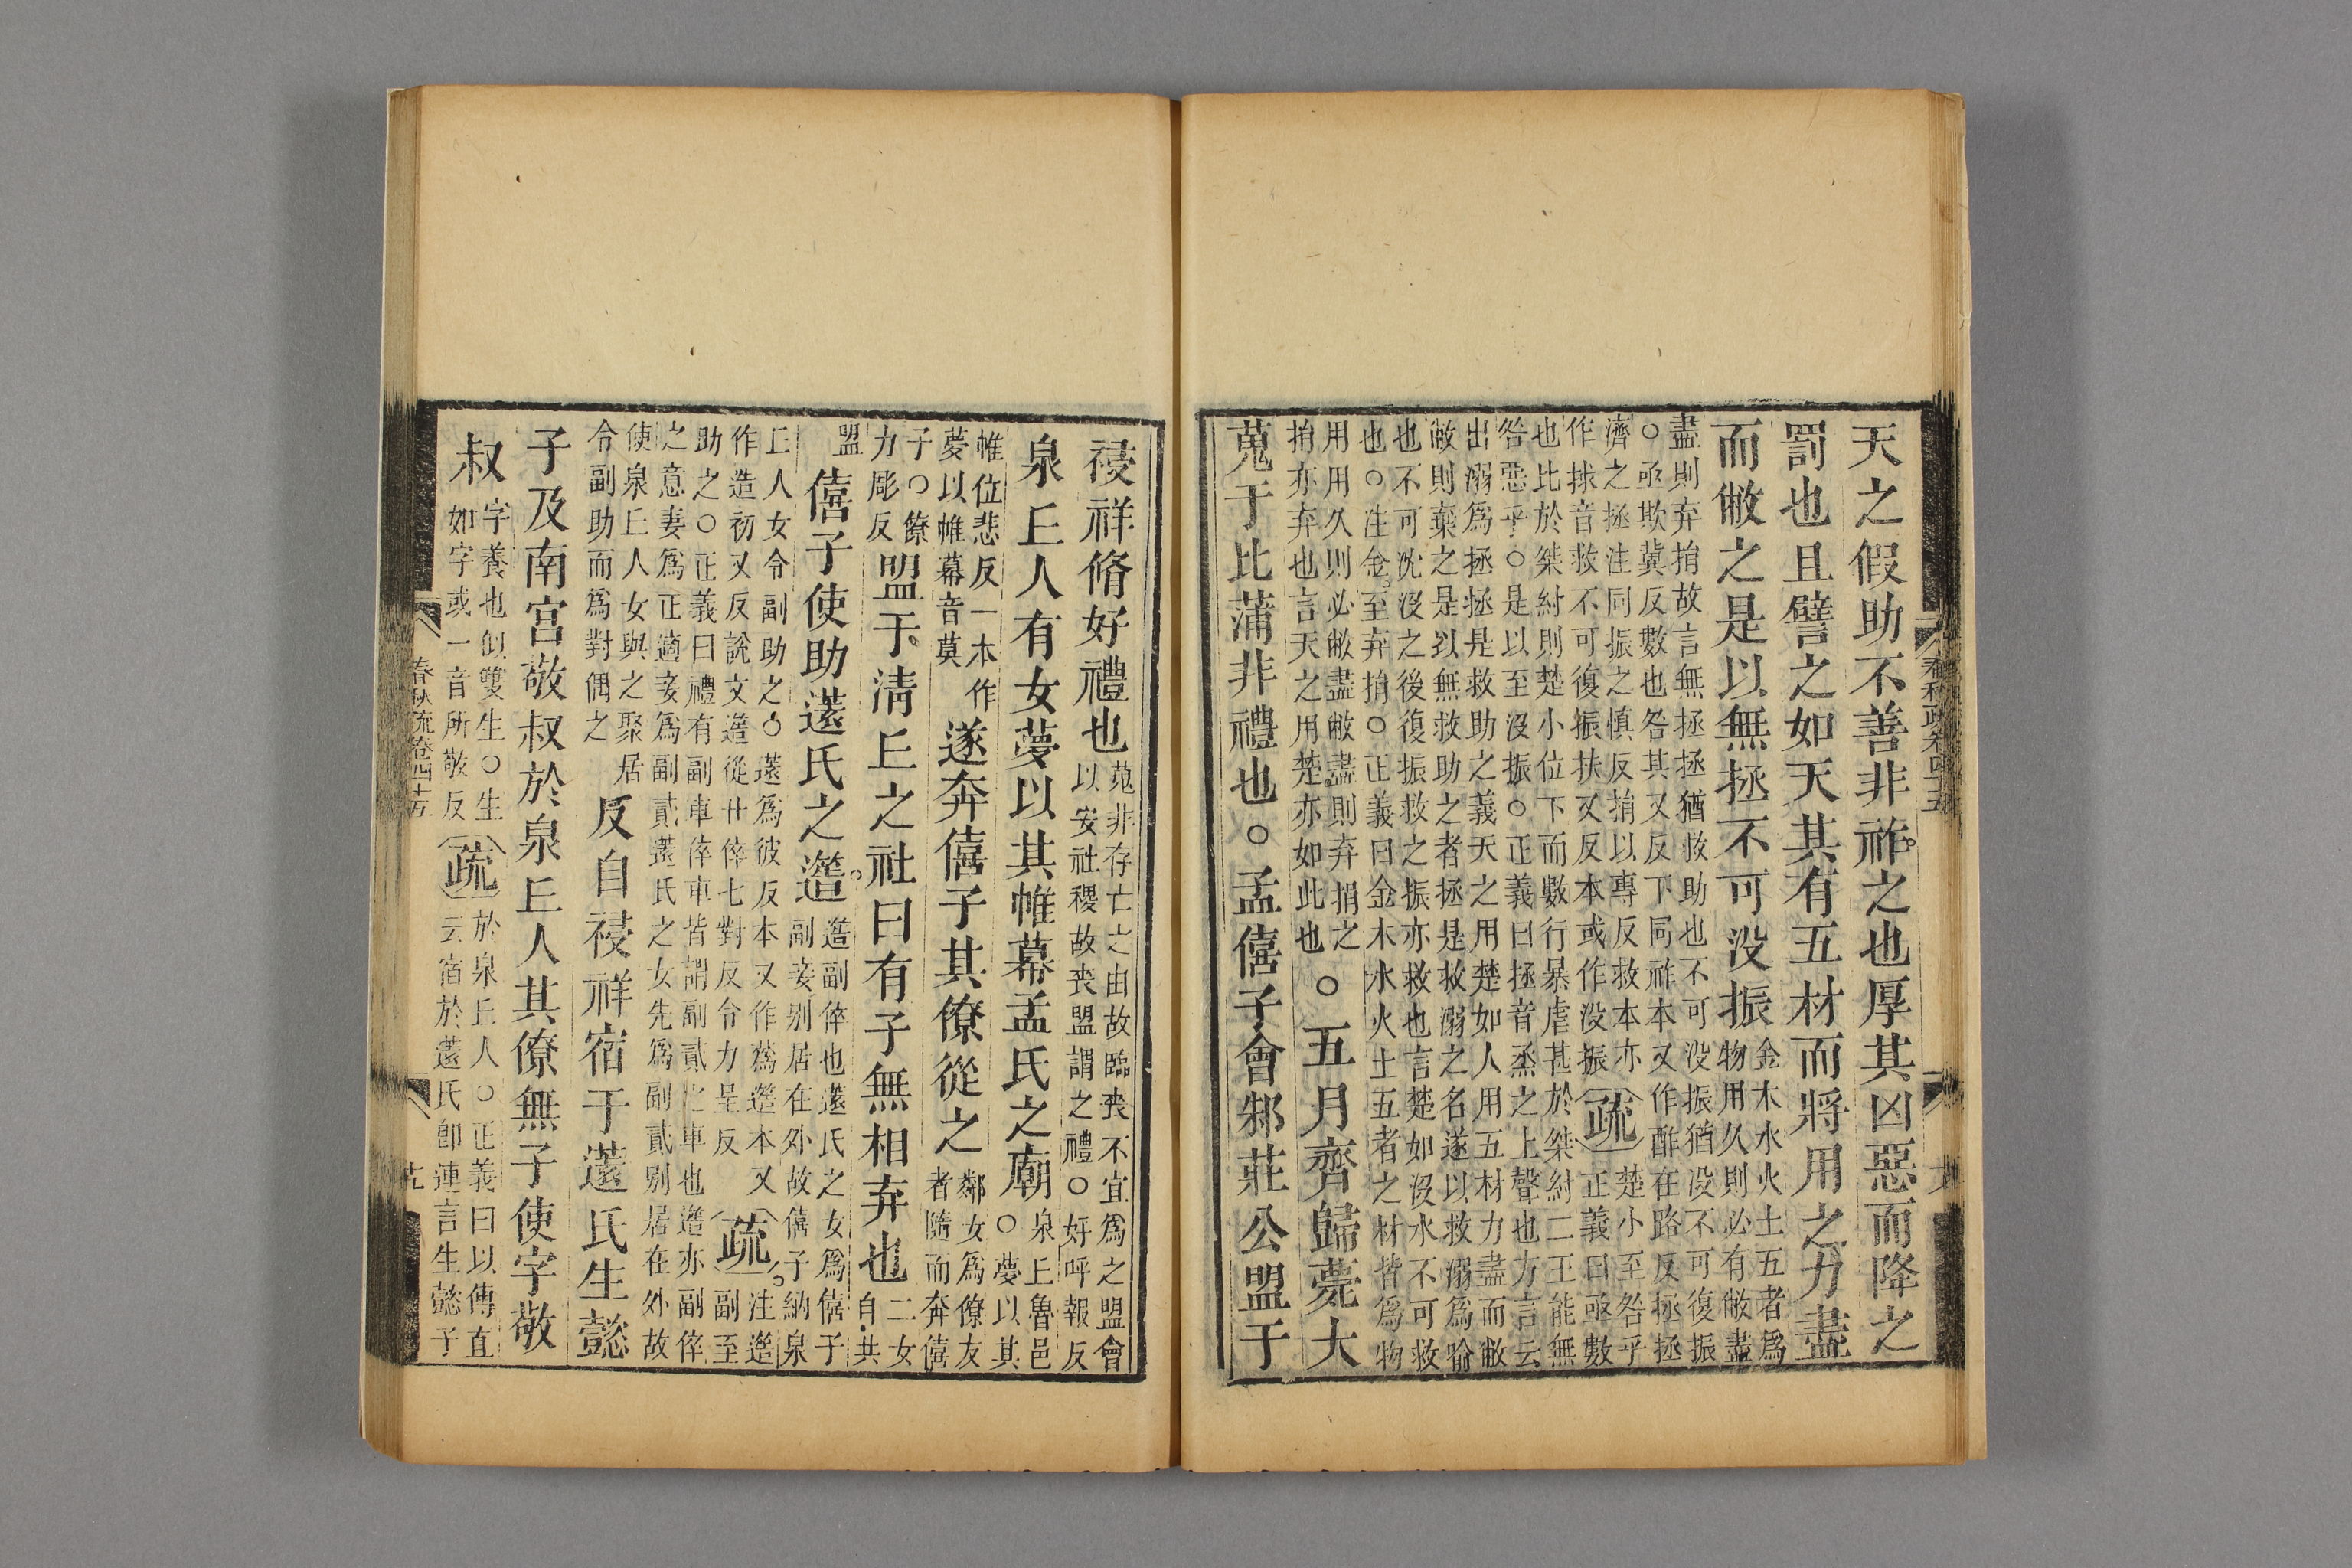 天之假助不善非祚之也厚其凶惡而降之
罰也且譬之如天其有五材而將用之力盡
而敝之是以無拯不可没振
金木水火土五者爲
物用久則必有敝盡
盡則弃捐故言無拯拯猶救助也不可没振猶没不可復振
○亟欺冀反數也咎其又反下同祚本又作酢在路反拯拯
濟之拯注同振之慎反捐以專反救本亦
作捄音救不可復振扶又反本或作没振
疏
楚小至咎乎
正義曰亟數
也比於桀紂則楚小位下而數行暴虐甚於桀紂二王能無
咎惡乎○是以至没振○正義曰拯音烝之上聲也方言云
出溺爲拯拯是救助之義天之用楚如人用五材力盡而敝
敝則棄之是以無救助之者拯是救溺之名遂以救溺爲喻
也不可沈没之後復振救之振亦救也言楚如没水不可救
也○注金至弃捐○正義曰金木水火土五者之材皆爲物
用用久則必敝盡敝盡則弃捐之
捐亦弃也言天之用楚亦如此也
○五月齊歸薨大
蒐于比蒲非禮也○孟僖子會邾莊公盟于
祲祥脩好禮也
蒐非存亡之由故臨喪不宜爲之盟會
以安社稷故喪盟謂之禮○好呼報反
泉丘人有女夢以其帷幕孟氏之廟
泉丘魯邑
○夢以其
帷位悲反一本作
夢以帷幕音莫
遂奔僖子其僚從之
鄰女爲僚友
者隨而奔僖
子○僚
力彫反
盟于清丘之社曰有子無相弃也
二女
自共
盟
僖子使助薳氏之簉
簉副倅也薳氏之女爲僖子
副妾别居在外故僖子納泉
丘人女令副助之○薳爲彼反本又作蔿簉本又
作造初又反說文簉從艸倅七對反令力呈反
疏
注簉
副至
助之○正義曰禮有副車倅車皆謂副貳之車也簉亦副倅
之意妻爲正適妾爲副貳薳氏之女先爲副貳别居在外故
使泉丘人女與之聚居
令副助而爲對偶之
反自祲祥宿于薳氏生懿
子及南宫敬叔於泉丘人其僚無子使字敬
叔
字養也似雙生○生
如字或一音所敬反
疏
於泉丘人○正義曰以傳直
云宿於薳氏卽連言生懿子
春秋疏卷四十五